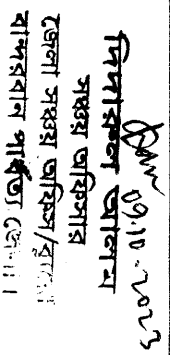 09.10.2023
দিদারুল আলম
সঞ্চয় অফিসার
জেলা সঞ্চয় অফিস/ব্যুরো
বান্দরবান পার্বত্য জেলা।